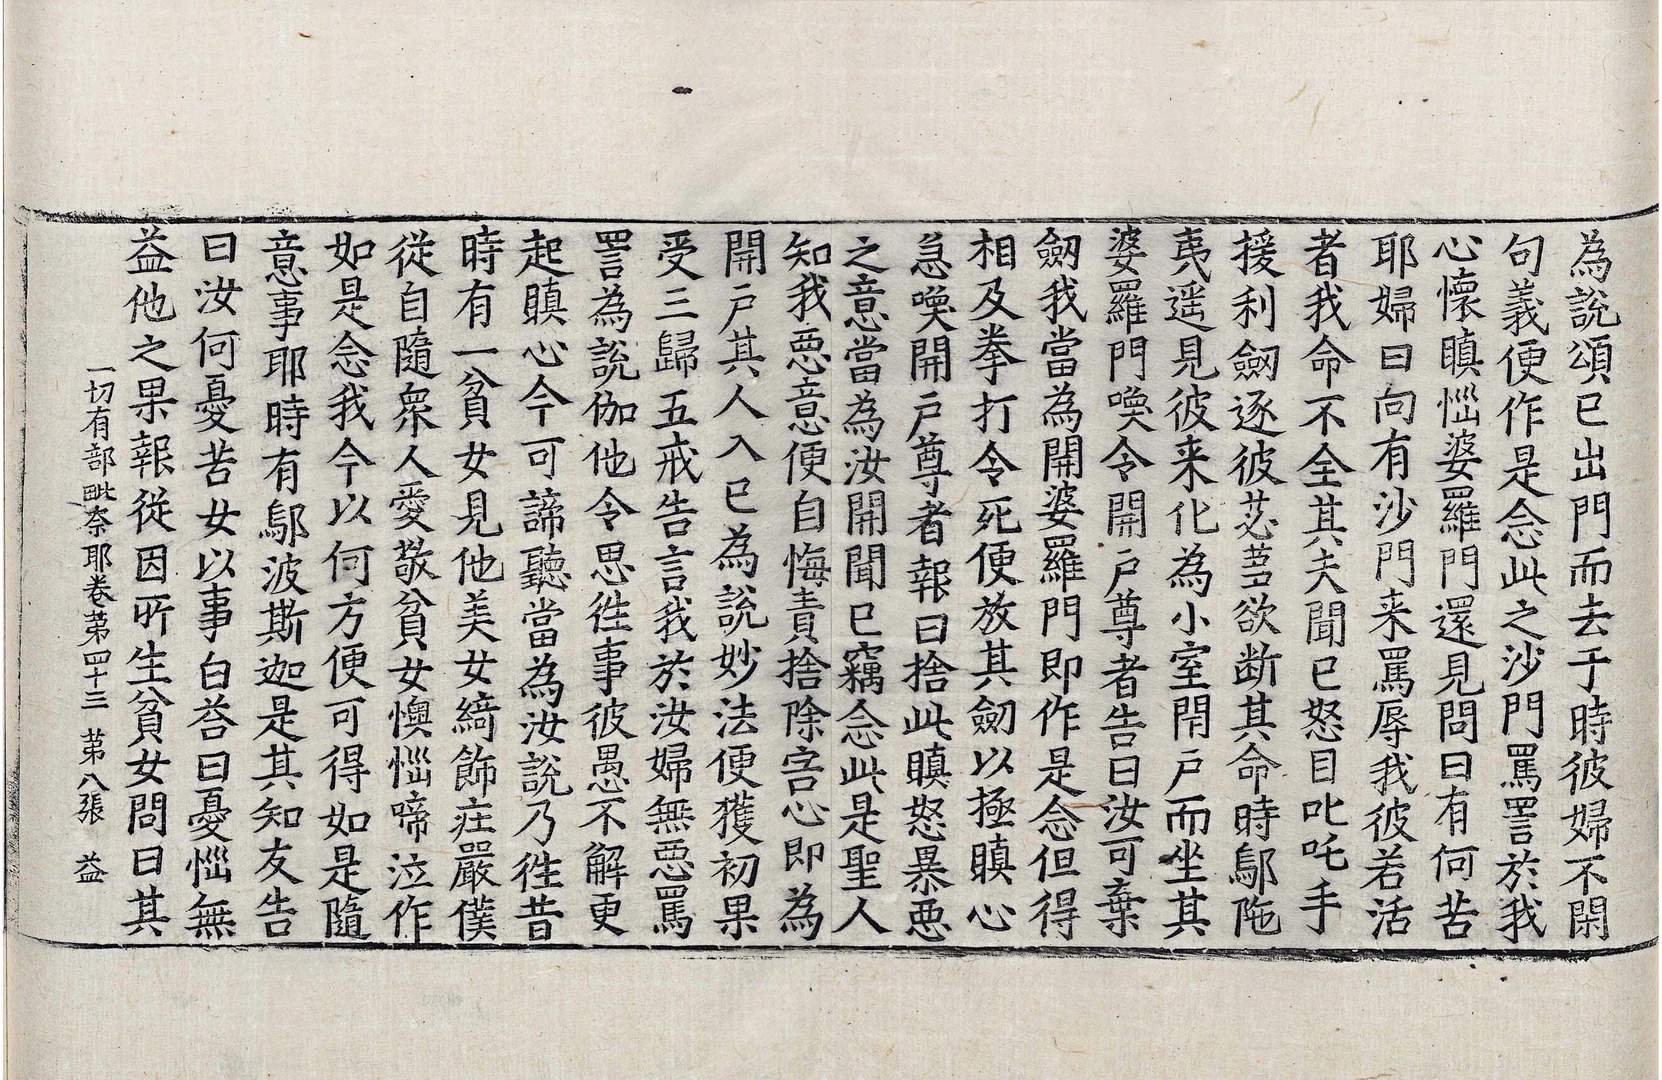 為說頌已出門而去于時彼婦不閑
句義便作是念此之沙門罵詈於我
心懷瞋惱婆羅門還見問曰有何苦
耶婦曰向有沙門来罵辱我彼若活
者我命不全其夫聞已怒目叱吒手
援利劔逐彼苾芻欲断其命時鄔陁
夷遥見彼来化為小室閇戶而坐其
婆羅門喚令開戶尊者告曰汝可棄
劔我當為開婆羅門即作是念但得
相及拳打令死便放其劔以極瞋心
急喚開戶尊者報曰捨此瞋怒暴惡
之意當為汝開聞已竊念此是聖人
知我惡意便自悔責捨除害心即為
開戶其人入已為說妙法便獲初果
受三歸五戒告言我於汝婦無惡罵
詈為說伽他令思往事彼愚不解更
起瞋心今可諦聽當為汝說乃往昔
時有一貧女見他美女綺飾莊嚴僕
從自隨衆人愛敬貧女懊惱啼泣作
如是念我今以何方便可得如是隨
意事耶時有鄔波斯迦是其知友告
曰汝何憂苦女以事白荅曰憂惱無
益他之果報從因所生貧女問曰其
一切有部毗奈耶卷苐四十三 苐八張 益